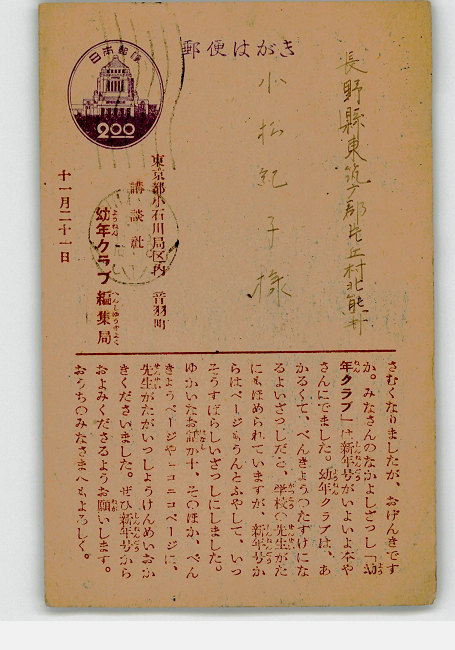 郵便はがき
日本郵便
2.00
長野縣東筑广郡片丘村北熊井
小松紀子様
東京都小石川局区内 音羽町
講談社
幼年クラブ編集局
十一月二十一日
さむくなりましたが、おげんきです
か。みなさんのなかよしざっし「幼
年クラブ」は新年号がいよいよ本や
さんにでました。幼年クラブは、あ
かるくて、べんきょうのたすけにな
るよいざっしだと、学校の先生がた
にもほめられていますが、新年号か
らはページもうんとふやして、いっ
そうすばらしいざっしにしました。
ゆかいなお話が十、そのほか、べん
きょうページやニコニコページに、
先生がたがいっしょうけんめいおか
きくださいました。ぜひ新年号から
およみくださるようお願いします。
おうちのみなさまへもよろしく。